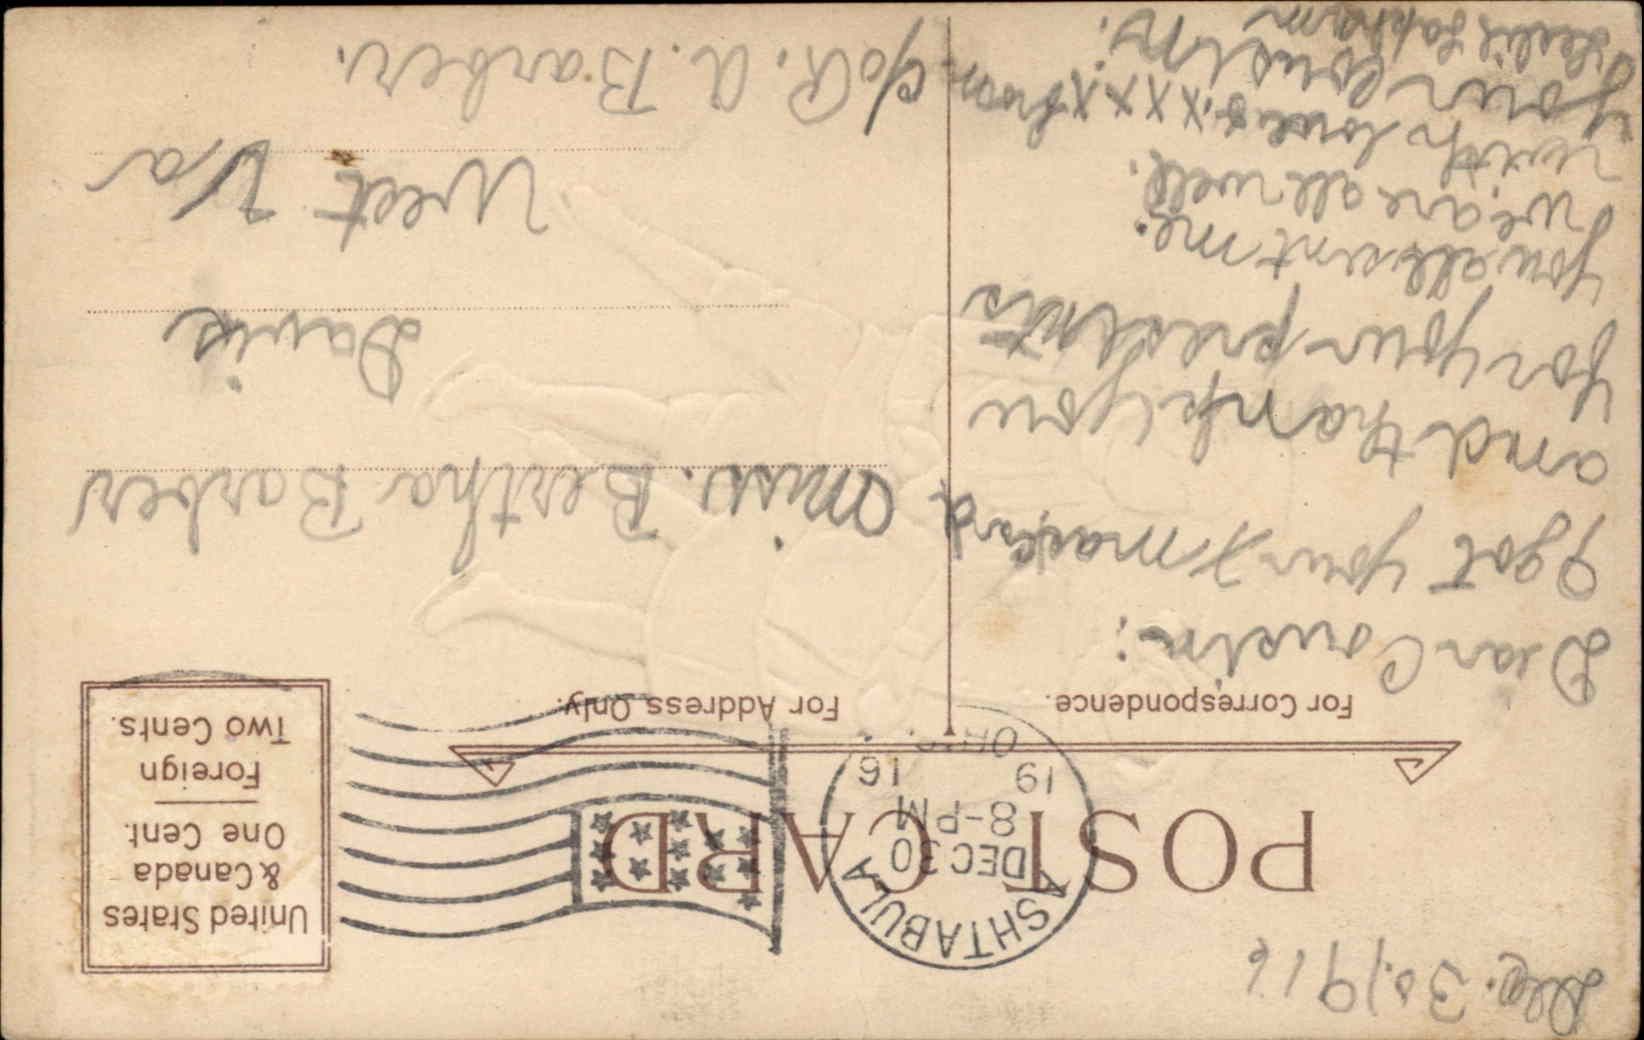 Dec. 30, 1916
POST CARD
ASHTABULA
DEC 30
8-PM
19 16
OHIO.
United States
& Canada
One Cent.
Foreign
Two Cents.
For Correspondence.
For Address Only.
Dear Cousin:
I got your Xmas card
and thank you
for your presents
you all sent me.
we are all well.
with love & xxxx from
your cousin.
Miss. Bertha Barber
Davis
West Va
c/o R. A. Barber.